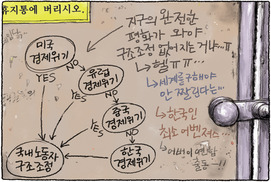 휴지통에 버리시오.
미국
경제위기
YES
NO
유럽
경제위기
YES
NO
중국
경제위기
YES
NO
한국
경제위기
국내노동자
구조조정
지구의 완전한
평화가 와야
구조조정 없어지는 거냐…ㅠ
헐ㅠㅠ…
세계를 구해야
안 짤린다는…
한국인
최초 어벤져스…
어벤이 멘탈
출동—!!